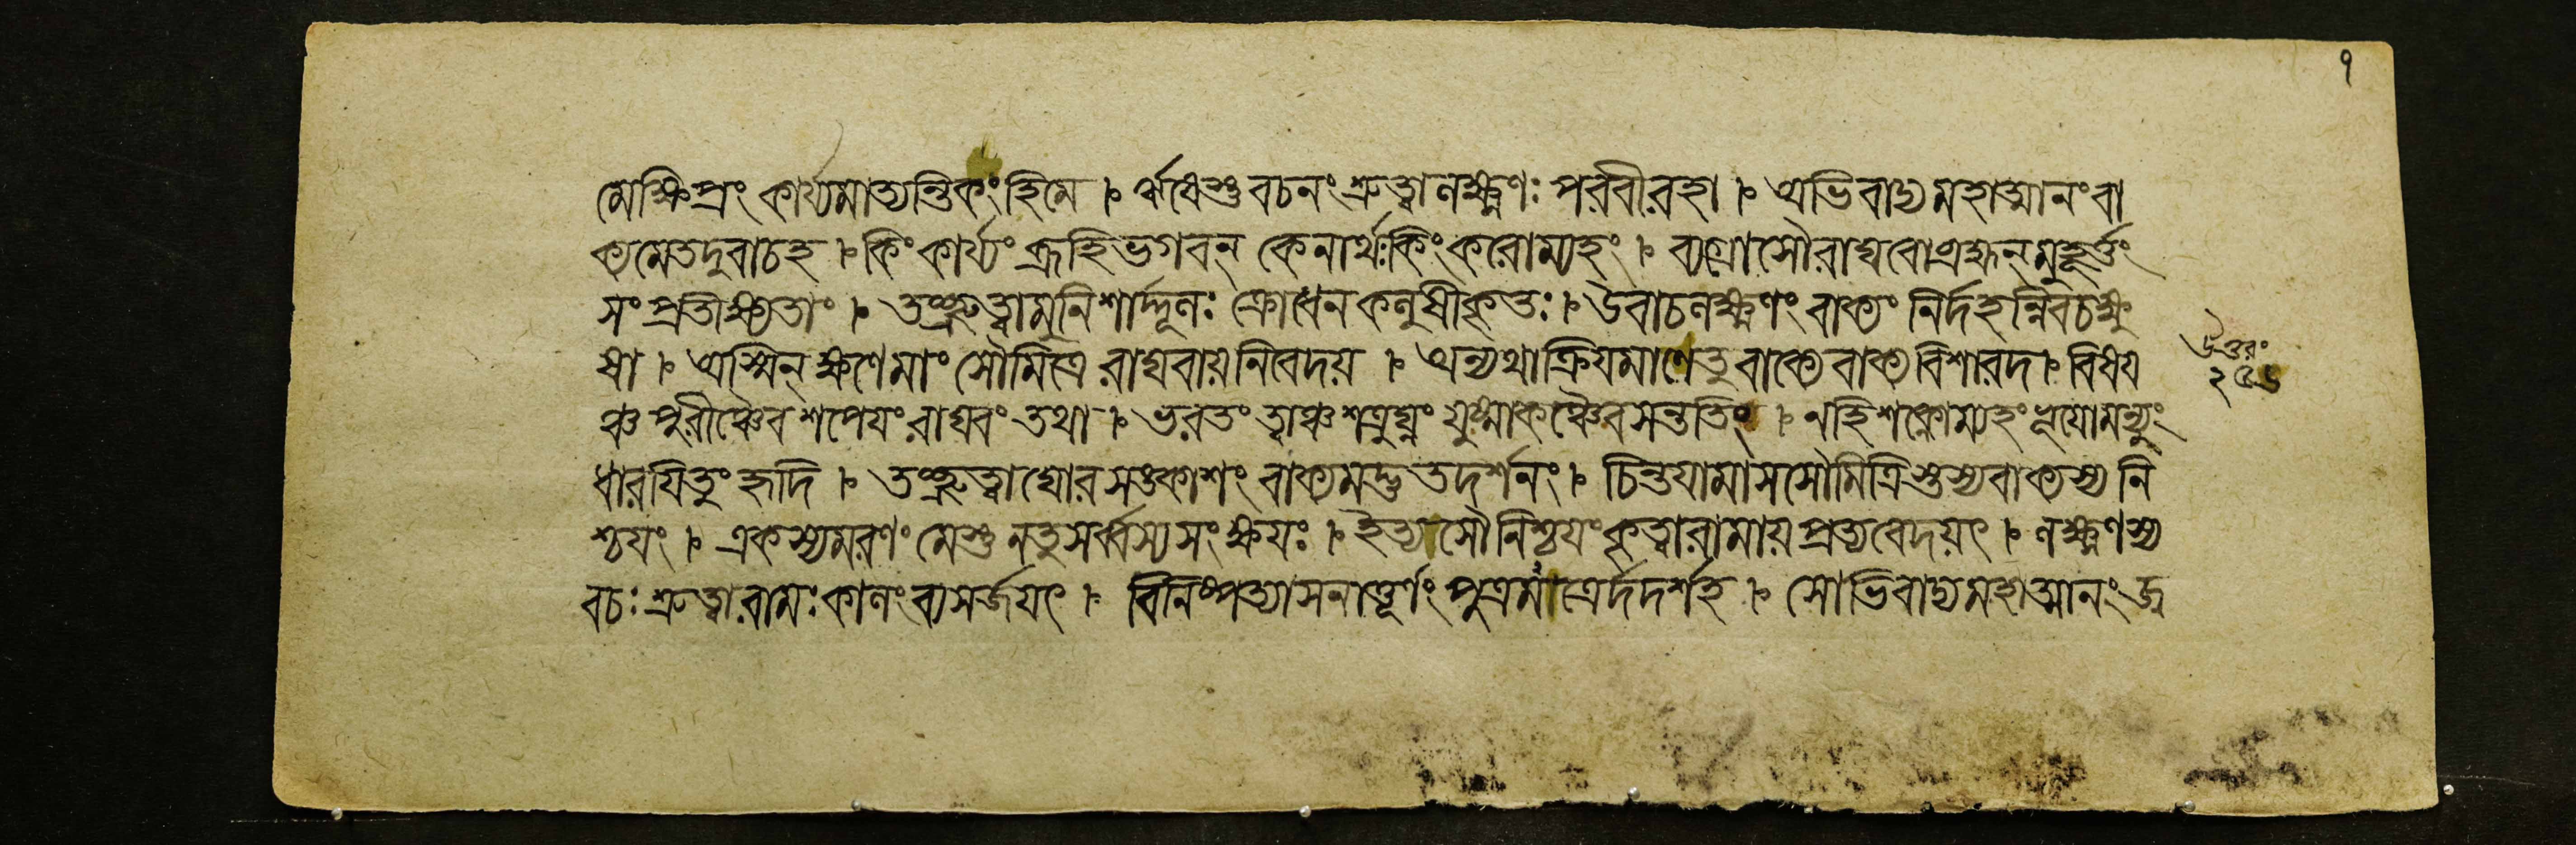 ৭
মেক্ষিপ্রং কার্য্যমাত্যন্তিকংহিমে । ঋষেস্তুবচনংশ্রুত্বালক্ষ্মণঃ পরবীরহা । অভিবাদ্যমহাত্মানংবা
ক্যমেতদুবাচহ । কিং কার্য্যং ব্রূহিভগবন্ কেনার্থঃকিংকরোম্যহং । ব্যগ্রোসৌরাঘবোব্রহ্মন্মুহূর্ত্তং
সংপ্রতীক্ষ্যতাং । তৎশ্রুত্বামুনিশার্দ্দূলঃ ক্রোধেনকলুষীকৃতঃ । উবাচলক্ষ্মণংবাক্যং নির্দহন্নিবচক্ষু
ষা । অস্মিন্ ক্ষণেমাং সৌমিত্রে রাঘবায়নিবেদয় । অন্যথাক্রিয়মাণেতুবাক্যেবাক্যবিশারদ । বিষয়
ঞ্চপুরীঞ্চৈবশপেয়ংরাঘবং তথা । ভরতং ত্বাঞ্চশত্রুঘ্নং যুষ্মাকঞ্চৈবসন্ততিং । নহিশক্নোম্যহংভূয়োমন্যুং
ধারয়িতুং হৃদি । তৎশ্রুত্বাঘোরসঙ্কাশং বাক্যমদ্ভুতদর্শনং । চিন্তয়ামাসসৌমিত্রিস্তস্যবাক্যস্যনি
শ্চয়ং । একস্যমরণং মেস্তু নতুসর্ব্বস্যসংক্ষয়ঃ । ইত্যসৌনিশ্চয়ংকৃত্বারামায়প্রত্যবেদয়ৎ । লক্ষ্মণস্য
বচঃশ্রুত্বারামঃকালংব্যসর্জয়ৎ । বিনিষ্পত্যাসনাত্তূর্ণং পুত্রমত্রের্দদর্শহ । সোভিবাদ্যমহাত্মানংজ্ব
উত্তরং
২৫৬